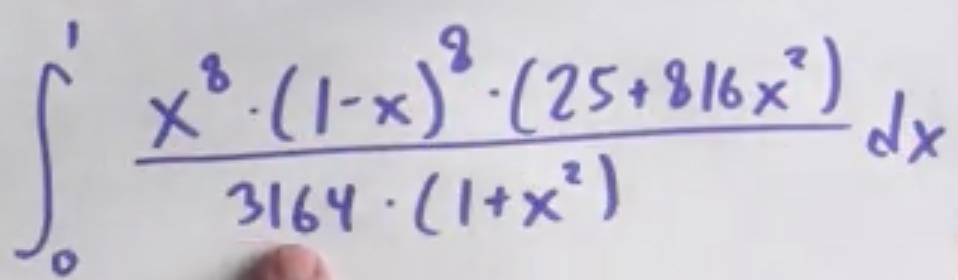 ∫₀¹ x⁸·(1-x)⁸·(25+816x²) / 3164·(1+x²) dx